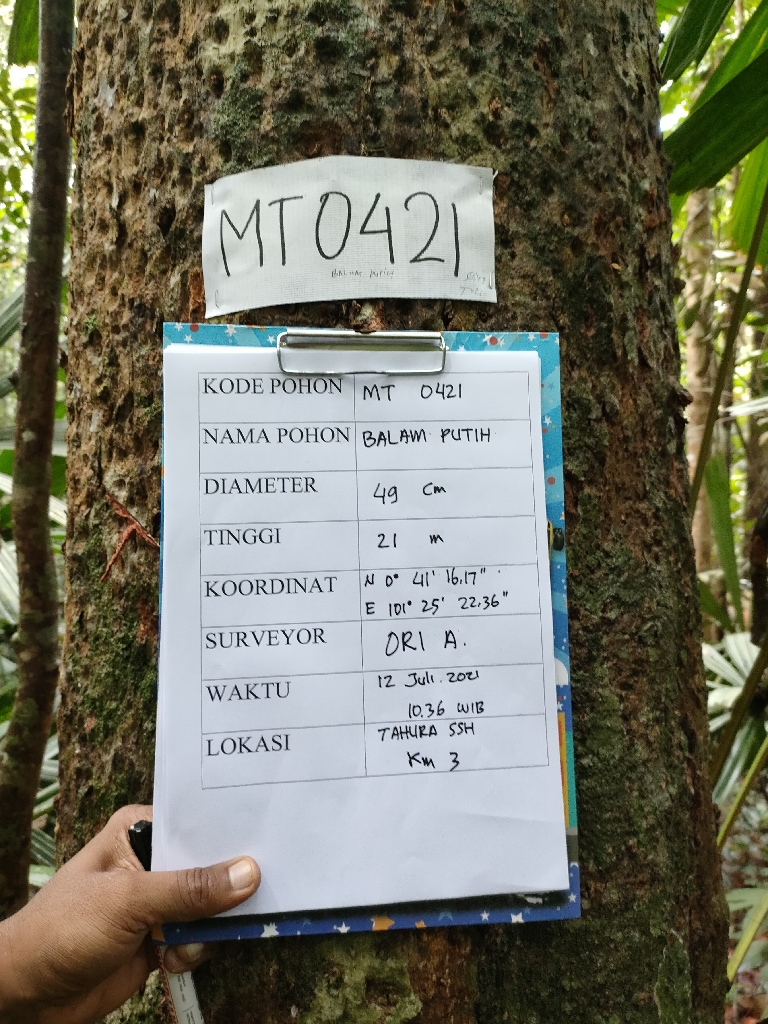 MT0421
BALAM PUTIH
KODE POHON MT 0421
NAMA POHON BALAM PUTIH
DIAMETER 49 cm
TINGGI 21 m
KOORDINAT N 0° 41' 16.17"
E 101° 25' 22.36"
SURVEYOR ORI A.
WAKTU 12 Juli. 2021
10.36 WIB
LOKASI TAHURA SSH
Km 3